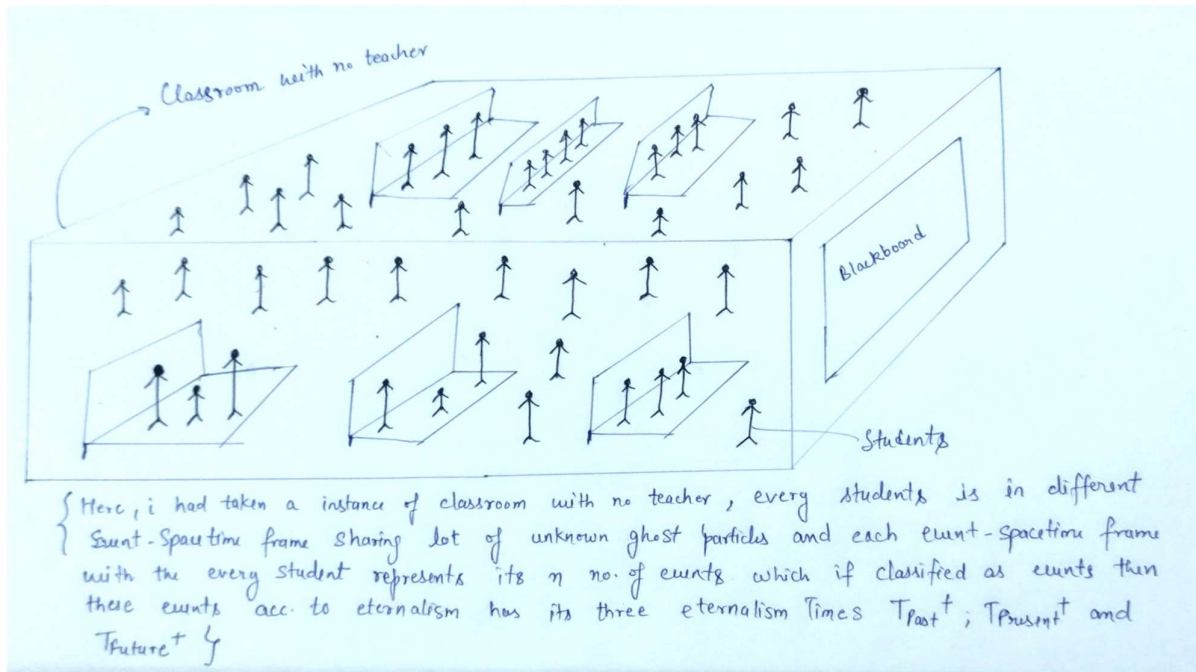 Classroom with no teacher
Blackboard
Students
{ Here, i had taken a instance of classroom with no teacher, every students is in different
Event-Spacetime frame sharing lot of unknown ghost particles and each event-spacetime frame
with the every student represents its n no. of events which if classified as events then
these events acc. to eternalism has its three eternalism Times TPast†; TPresent† and
TFuture† }